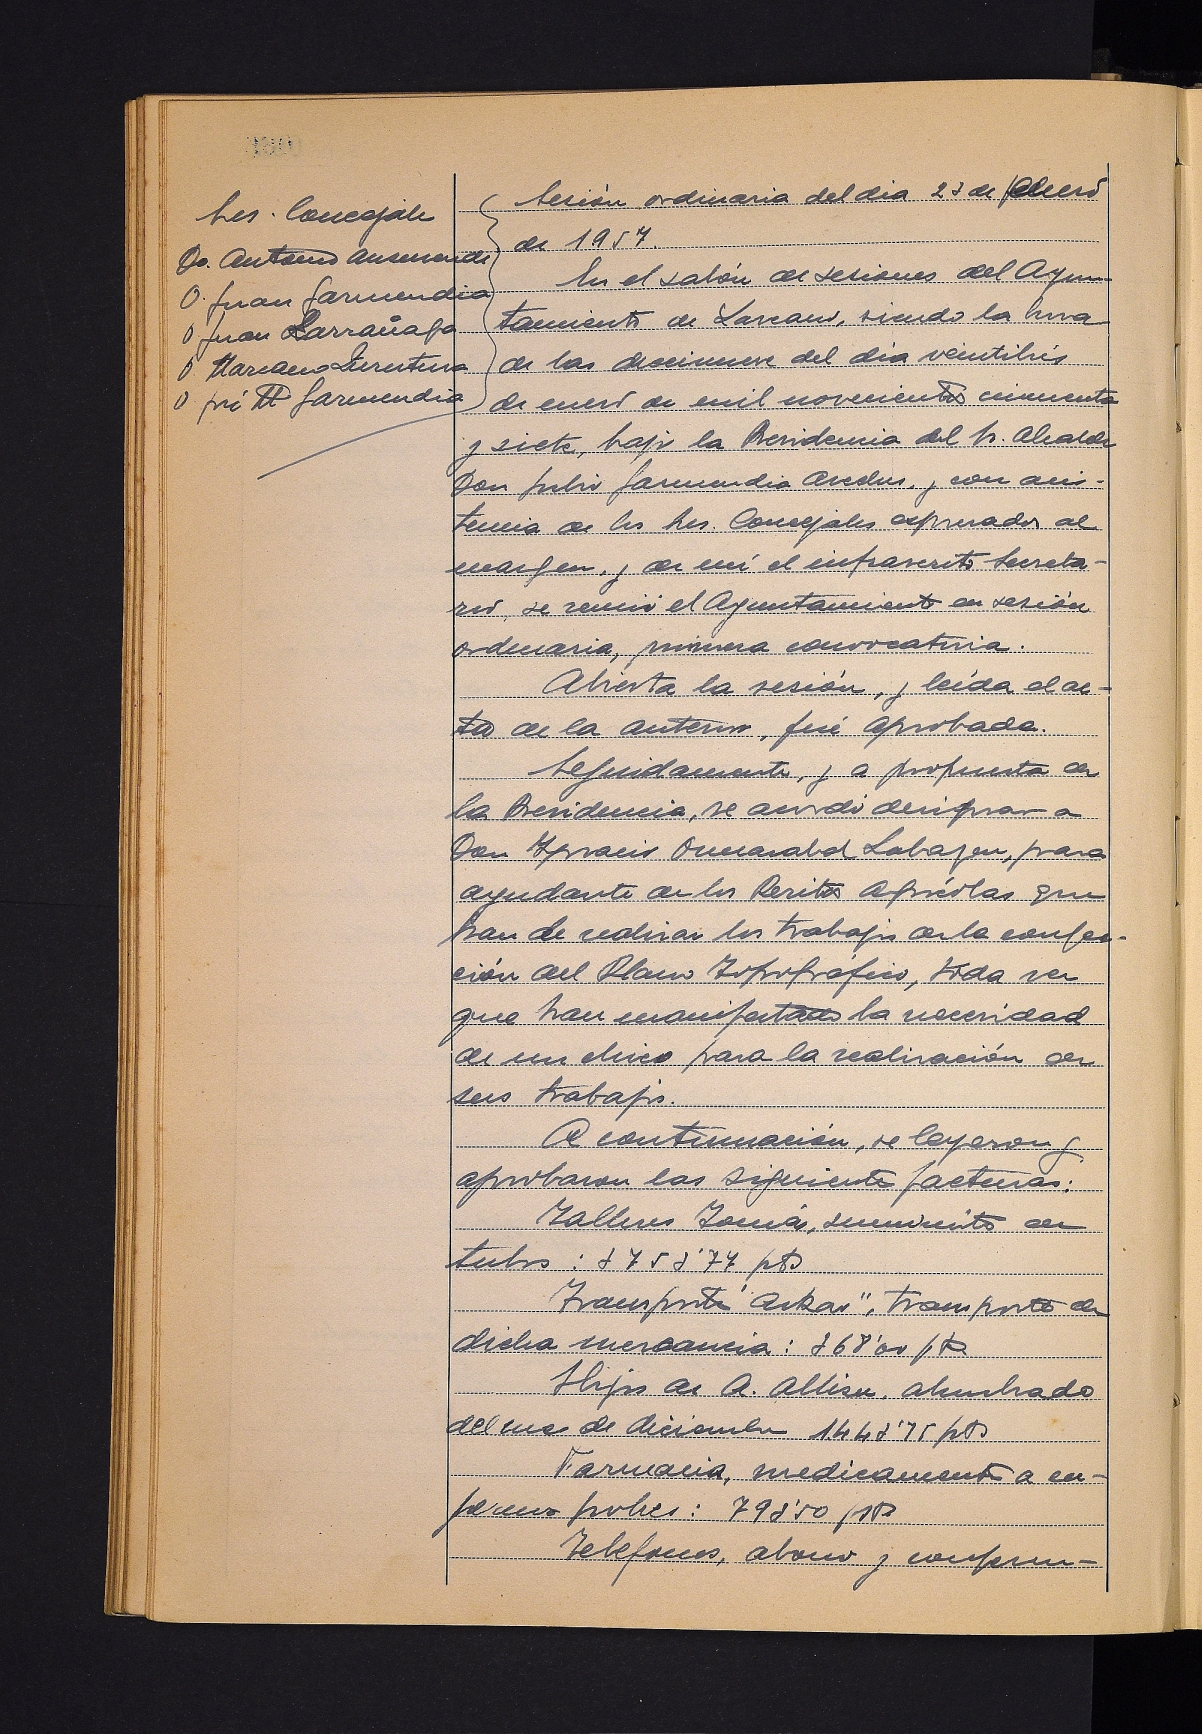 Sres. Concejales
Dn. Antonio Aurrecoechea
D. Juan Garmendia
D. Juan Larrañaga
D. Mariano
D. José Mª Garmendia
Sesión ordinaria del dia 23 de
de 1957.
En el salón de sesiones del Ayun-
tamiento de Lazcano, siendo la hora
de las diecinueve del dia veintitrés
de enero de mil novecientos cincuenta
y siete, bajo la Presidencia del Sr. Alcalde
Don Julio Garmendia y con asis-
tencia de los Sres. Concejales expresados al
margen, y de mí el infrascrito Secreta-
rio, se reunió el Ayuntamiento en sesión
ordinaria, primera convocatoria.
Abierta la sesión, y leída el ac-
ta de la anterior, fué aprobada.
Seguidamente, y a propuesta de
la Presidencia, se acordó designar a
Don Ignacio para
ayudante de los Peritos Agrícolas que
han de realizar los trabajos de la confec-
ción del Plano Topográfico, toda vez
que han manifestado la necesidad
de un chico para la realización de
sus trabajos.
A continuación, se leyeron y
aprobaron las siguientes facturas:
Talleres Tomás, suministro de
tubos: 3753'77 pts
Transportes "Askar", transporte de
dicha mercancía: 368'00 pts
Hijos de A. alumbrado
del mes de diciembre 1443'75 pts
Farmacia, medicamentos a en-
fermos pobres: 793'50 pts
Teléfonos, abono y conferen-